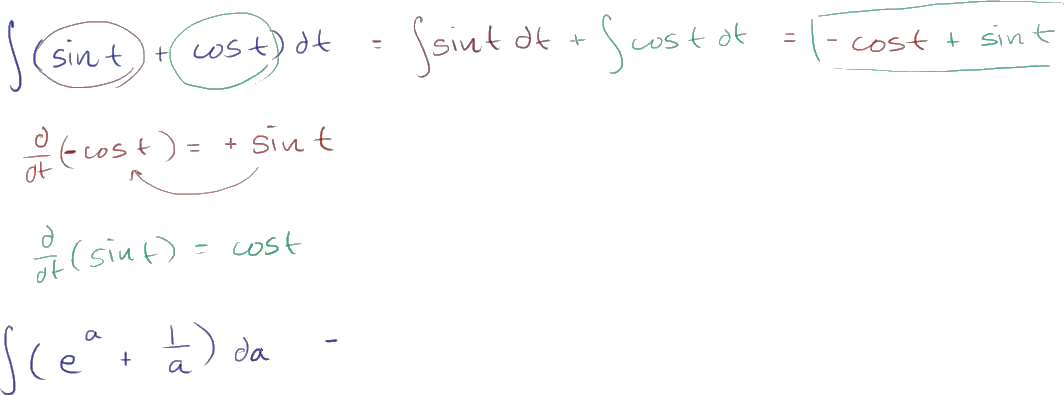 ∫(sin t + cos t) dt = ∫sin t dt + ∫cos t dt = -cos t + sin t
d/dt(-cos t) = + sin t
d/dt(sin t) = cos t
∫(e^a + 1/a) da -